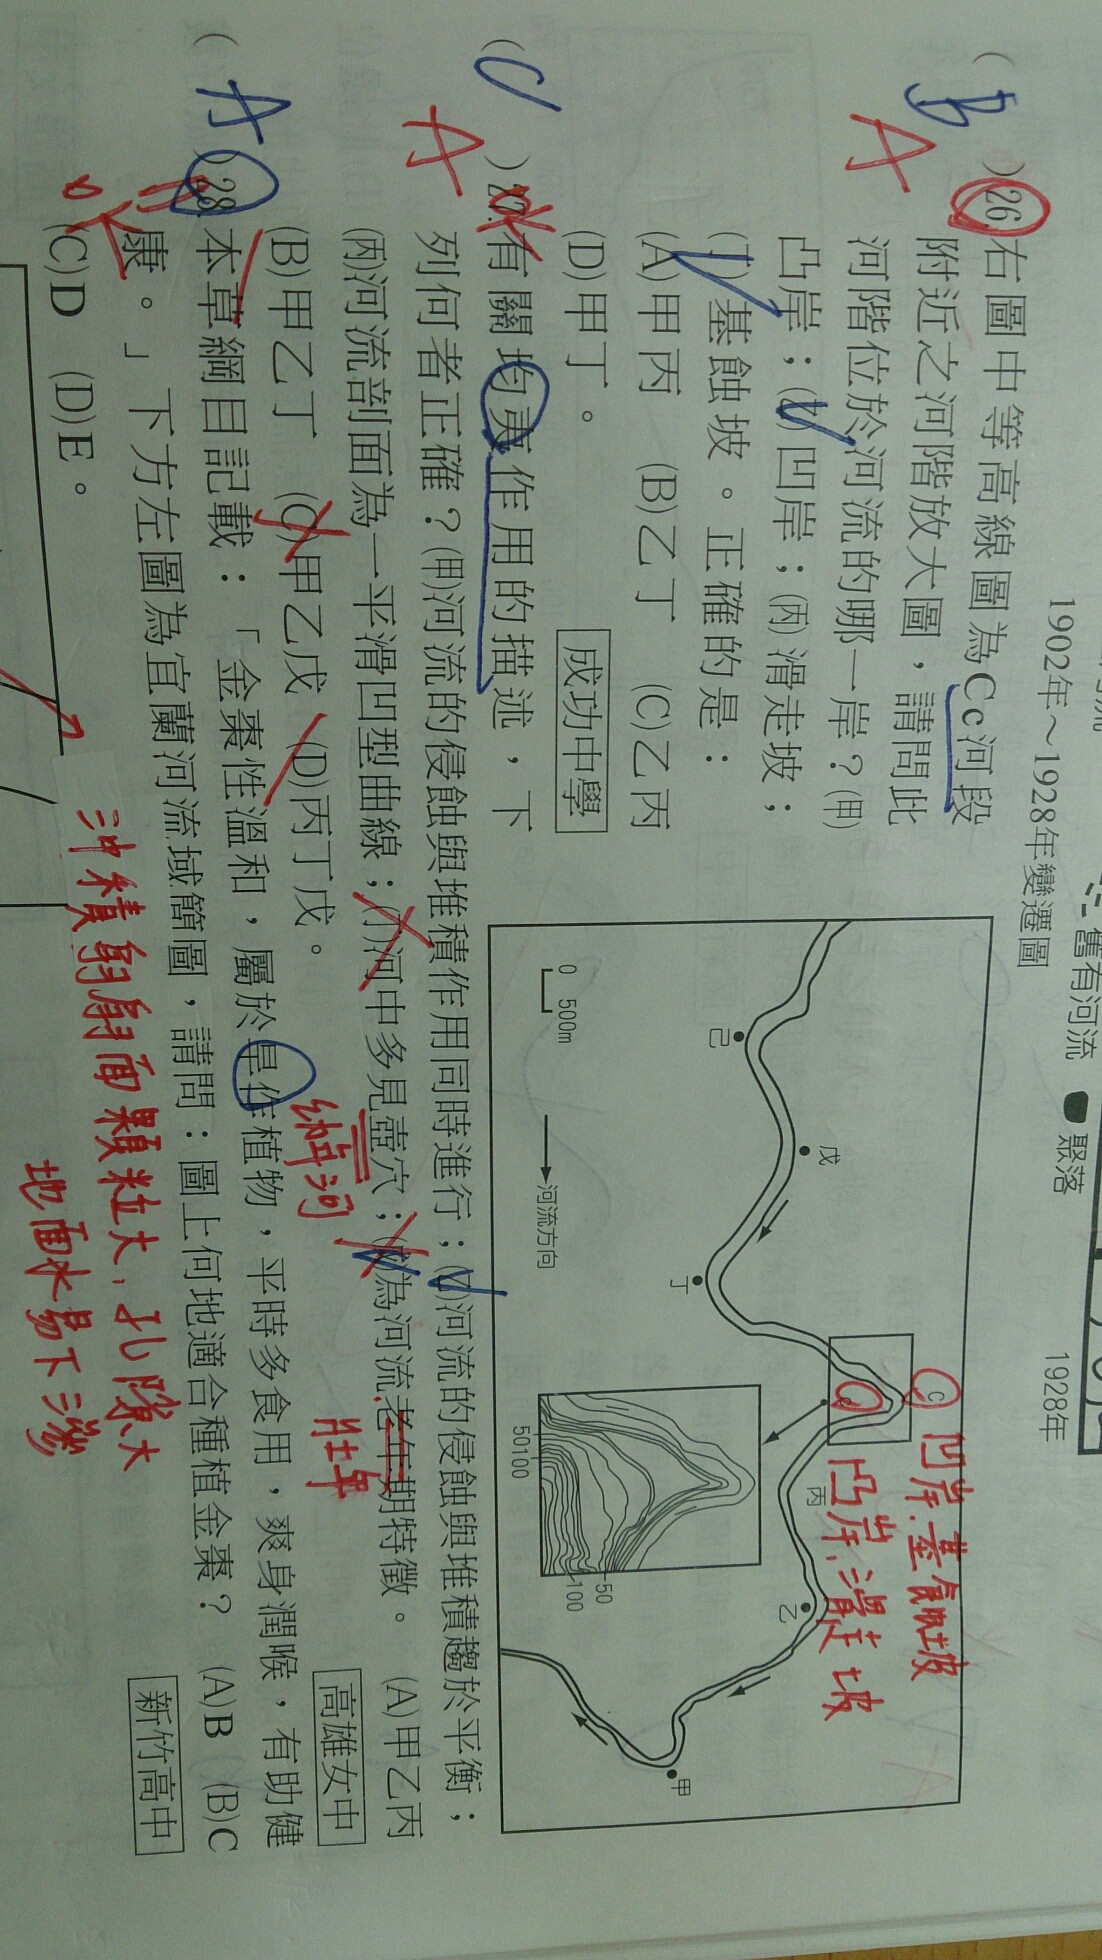 1902年～1928年變遷圖
舊有河流
聚落
1928年
( B )26.右圖中等高線圖為Cc河段
附近之河階放大圖，請問此
河階位於河流的哪一岸？(甲)
凸岸；(乙)凹岸；(丙)滑走坡；
(丁)基蝕坡。正確的是：
(A)甲丙 (B)乙丁 (C)乙丙
(D)甲丁。
成功中學
A
己
戊
丁
丙
乙
甲
C
c
0 500m
河流方向
50 100
50
100
凹岸.基蝕坡
凸岸.滑走坡
( C )27.有關均夷作用的描述，下
列何者正確？(甲)河流的侵蝕與堆積作用同時進行；(乙)河流的侵蝕與堆積趨於平衡；
(丙)河流剖面為一平滑凹型曲線；(丁)河中多見壺穴；(戊)為河流老年期特徵。 (A)甲乙丙
(B)甲乙丁 (C)甲乙戊 (D)丙丁戊。
高雄女中
A
壯年
( A )28.本草綱目記載：「金棗性溫和，屬於旱作植物，平時多食用，爽身潤喉，有助健
康。」下方左圖為宜蘭河流域簡圖，請問：圖上何地適合種植金棗？ (A)B (B)C
(C)D (D)E。
新竹高中
沖積扇扇面顆粒大，孔隙大
地面水易下滲